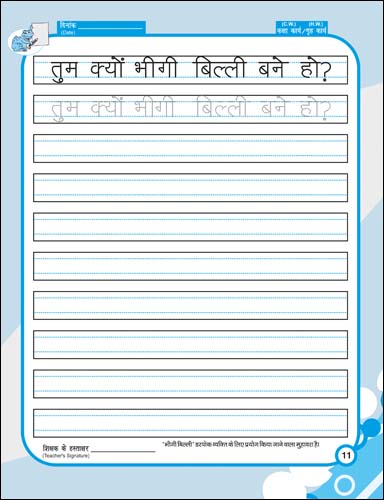 दिनांक
(Date)
(C.W.) (H.W.)
कक्षा कार्य/गृह कार्य
तुम क्यों भीगी बिल्ली बने हो?
तुम क्यों भीगी बिल्ली बने हो?
शिक्षक के हस्ताक्षर
(Teacher's Signature)
"भीगी बिल्ली" डरपोक व्यक्ति के लिए प्रयोग किया जाने वाला मुहावरा है।
11